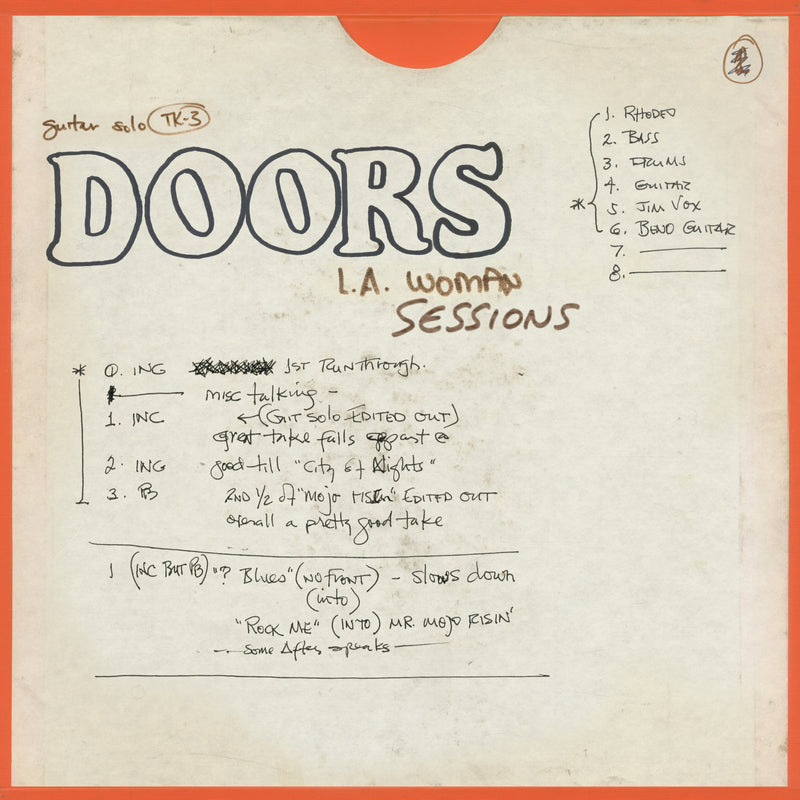 guitar solo TK-3
DOORS
L.A. WOMAN
SESSIONS
1. RHODES
2. BASS
3. DRUMS
4. GUITAR
* 5. JIM VOX
6. BEND GUITAR
7.
8.
* 0. INC 1ST RUNTHROUGH.
misc talking -
1. INC ← (GIT SOLO EDITED OUT)
great take falls apart @
2. INC good till "City of Nights"
3. PB 2ND 1/2 of "Mojo RISIN" EDITED OUT
overall a pretty good take
1 (INC BUT PB) "? Blues" (NO FRONT) - slows down
(into)
"ROCK ME" (INTO) MR. MOJO RISIN'
- Some After speaks -